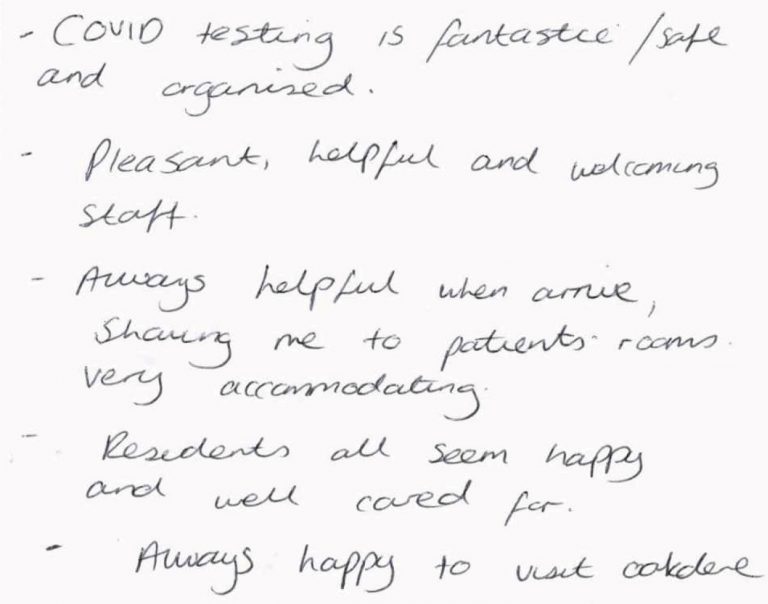 - COVID testing is fantastic /safe
and organised.
- Pleasant, helpful and welcoming
staff.
- Always helpful when arrive,
Showing me to patients rooms.
very accommodating.
- Residents all seem happy
and well cared for.
- Always happy to visit oakdene